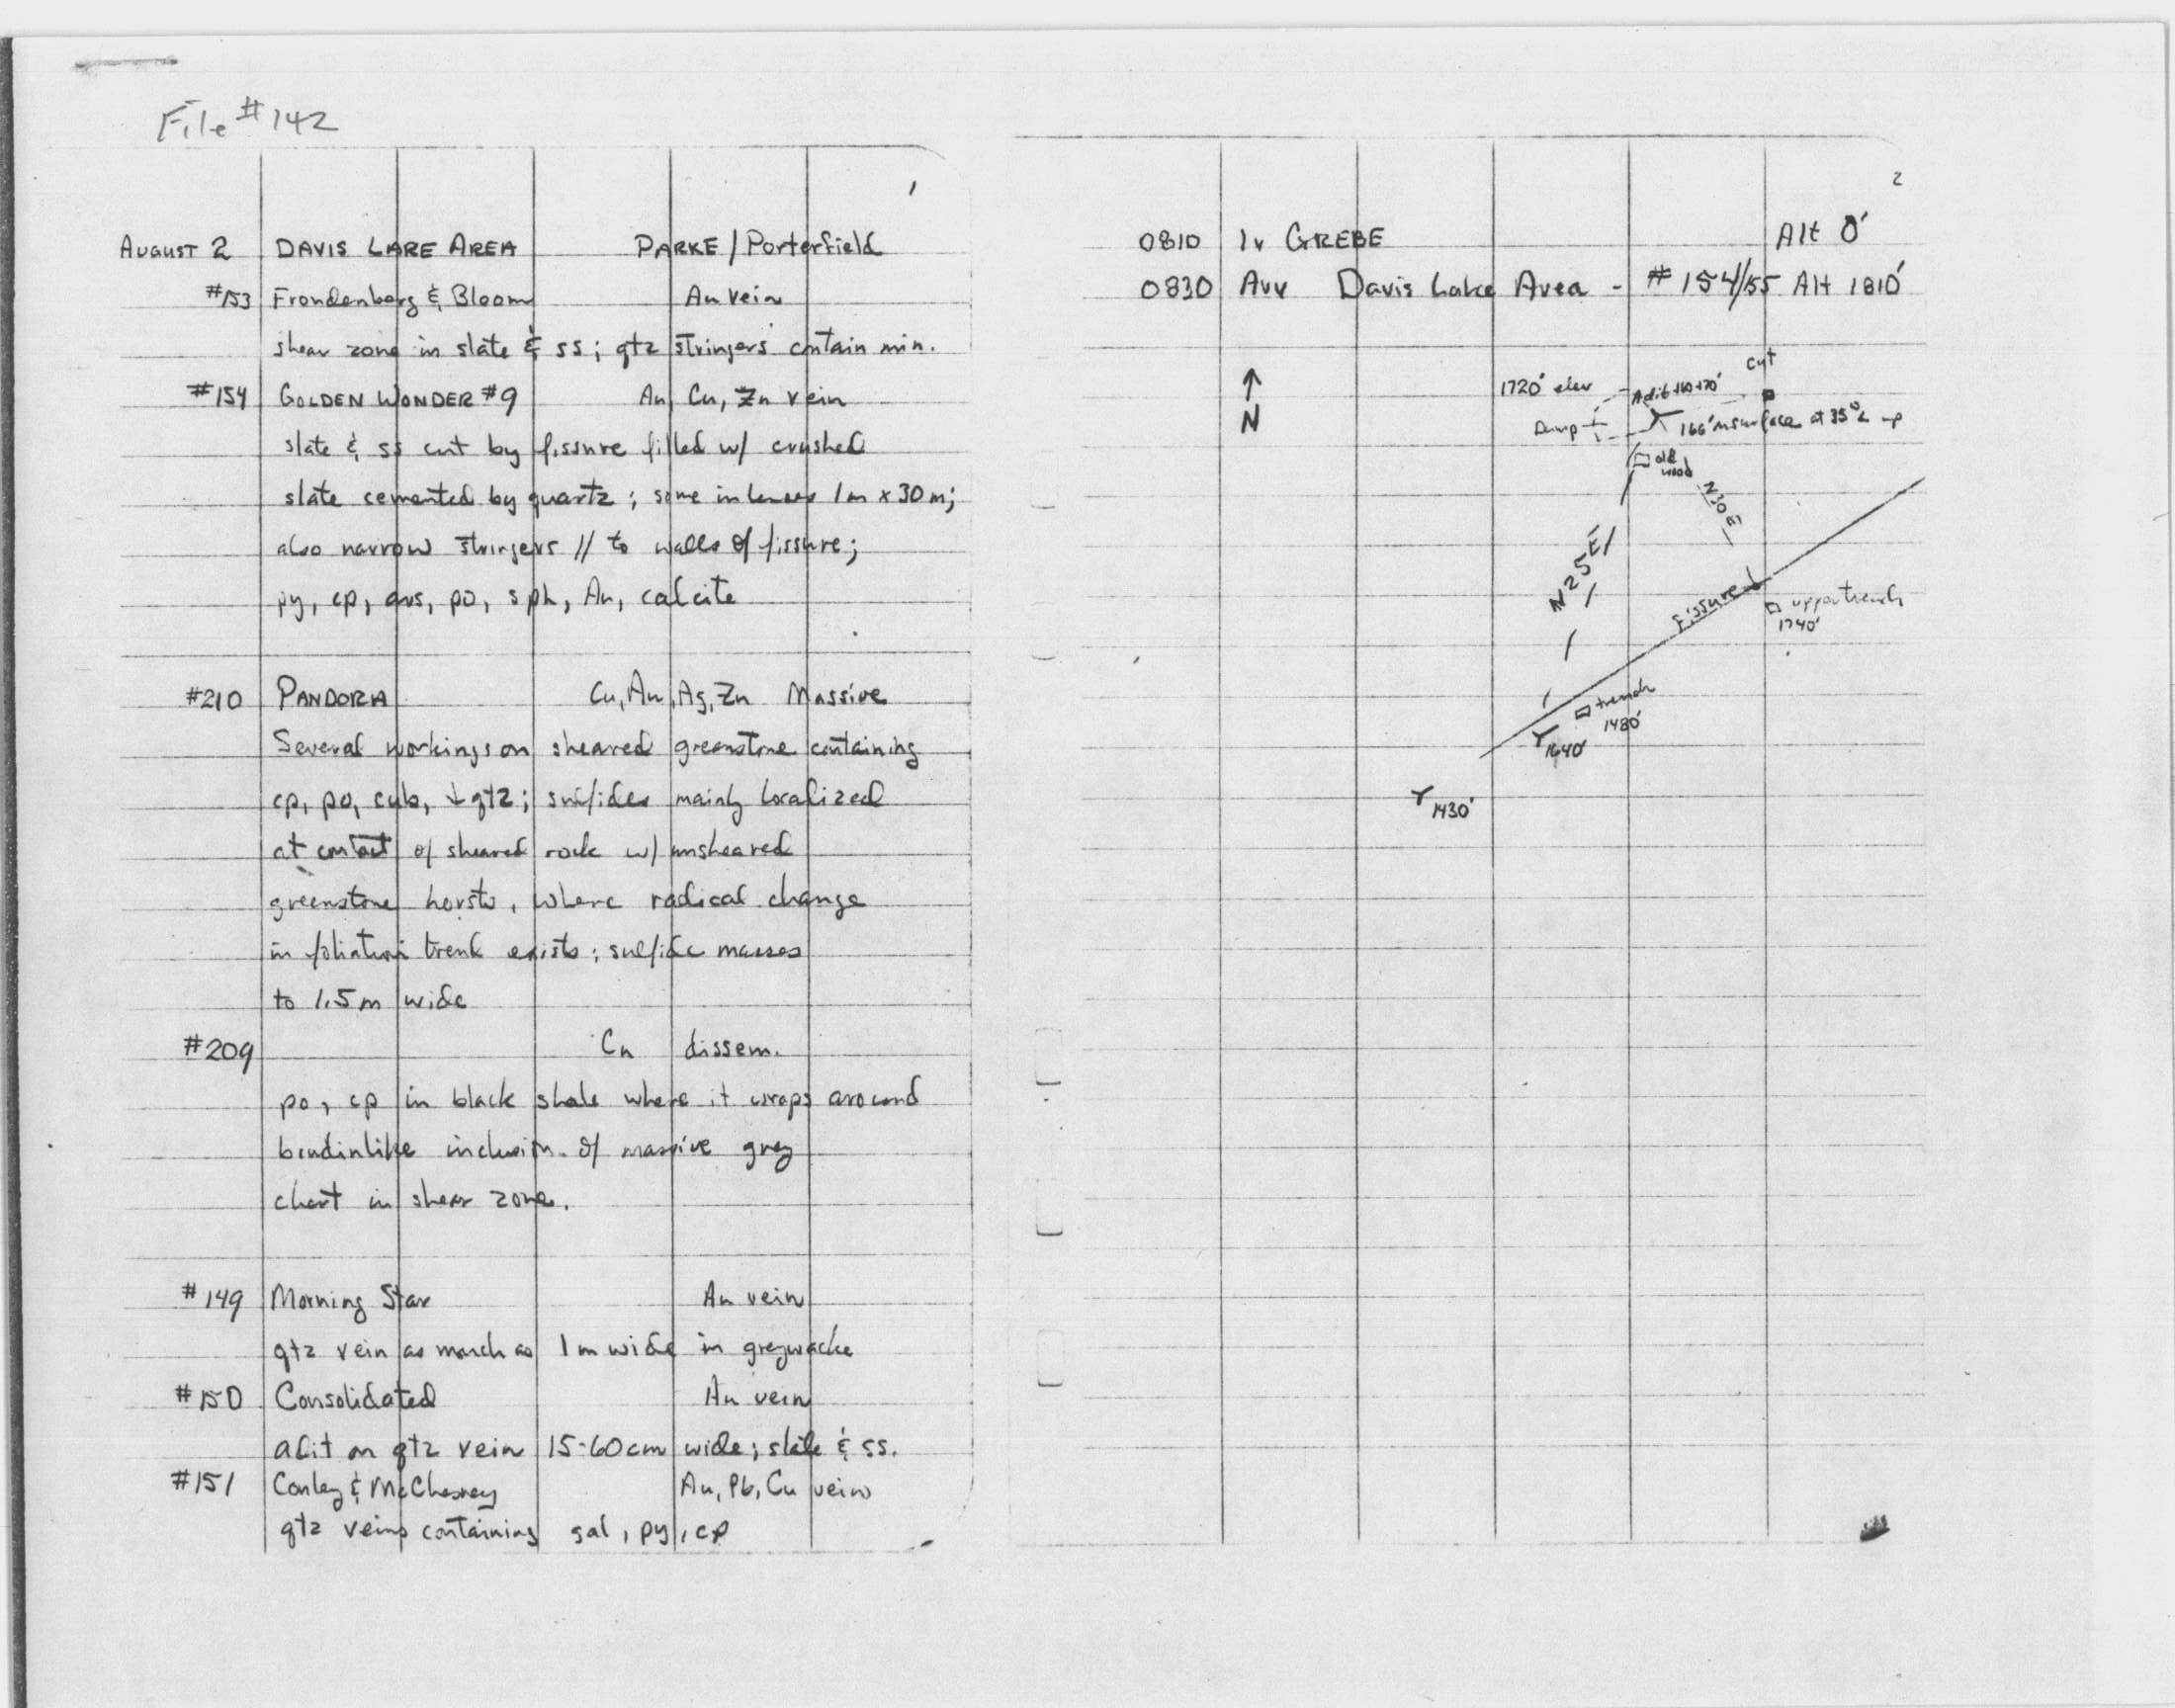 File #142
1
August 2 DAVIS LAKE AREA PARKE / Porterfield
#153 Frondenberg & Bloom Au vein
shear zone in slate & ss; qtz stringers contain min.
#154 GOLDEN WONDER #9 Au, Cu, Zn vein
slate & ss cut by fissure filled w/ crushed
slate cemented by quartz; some in lenses 1m x 30m;
also narrow stringers // to walls of fissure;
py, cp, ars, po, sph, Au, calcite
#210 PANDORA Cu, Au, Ag, Zn Massive
Several workings on sheared greenstone containing
cp, po, cub, + qtz; sulfides mainly localized
at contact of sheared rock w/ unsheared
greenstone horsts, where radical change
in foliation trend exists; sulfide masses
to 1.5m wide
#209 Cu dissem.
po, cp in black shale where it wraps around
boudinlike inclusion of massive grey
chert in shear zone.
#149 Morning Star Au vein
qtz vein as much as 1m wide in greywacke
#150 Consolidated Au vein
adit on qtz vein 15-60cm wide; slate & ss.
#151 Conley & McChesney Au, Pb, Cu vein
qtz veins containing gal, py, cp
2
0810 lv GREBE Alt 0'
0830 Arr Davis Lake Area - #154/155 Alt 1810'
N
cut
1720' elev
Adit
Dump
166' on surface at 35° up
old
N30E
N25E
Fissure
upper trench
1740'
trench
1480'
1640'
1430'